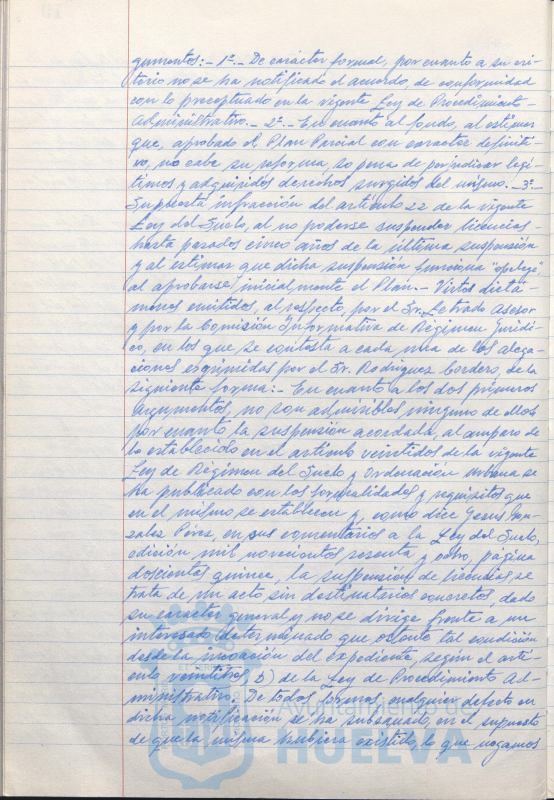 gumentos:- 1º.- De carácter formal, por cuanto a su cri-
terio no se ha notificado el acuerdo, de conformidad
con lo preceptuado en la vigente Ley de Procedimiento
Administrativo.- 2º.- En cuanto al fondo, al estimar
que, aprobado el Plan Parcial con caracter definiti-
vo, no cabe su reforma, so pena de perjudicar legí-
timos y adquiridos derechos surgidos del mismo.- 3º.-
Supuesta infracción del artículo 22 de la vigente
Ley del Suelo, al no poderse suspender licencias
hasta pasados cinco años de la última suspensión
y al estimar que dicha suspensión funciona "opelege"
al aprobarse inicialmente el Plan.- Vistos dictá-
menes emitidos, al respecto, por el Sr. Letrado Asesor
y por la Comisión Informativa de Régimen Jurídi-
co, en los que se contesta a cada una de las alega-
ciones esgrimidas por el Sr. Rodríguez Cordero, de la
siguiente forma:- En cuanto a los dos primeros
argumentos, no son admisibles ninguno de ellos
por cuanto la suspensión acordada, al amparo de
lo establecido en el artículo veintidos de la vigente
Ley de Régimen del Suelo y Ordenación Urbana se
ha publicado con las formalidades y requisitos que
en el mismo se establecen y, como dice Jesus Gon-
zalez Pérez, en sus comentarios a la Ley del Suelo,
edición mil novecientos sesenta y ocho, página
doscientos quince, la suspensión de licencias se
trata de un acto sin destinatarios concretos, dado
su carácter general y no se dirige frente a un
interesado determinado que ostente tal condición
desde la incoación del expediente, según el artí-
culo veintitres, b) de la Ley de Procedimiento Ad-
ministrativo. De todas formas, cualquier defecto en
dicha notificación se ha subsanado, en el supuesto
de que la misma hubiera existido, lo que negamos
Ayuntamiento de
HUELVA